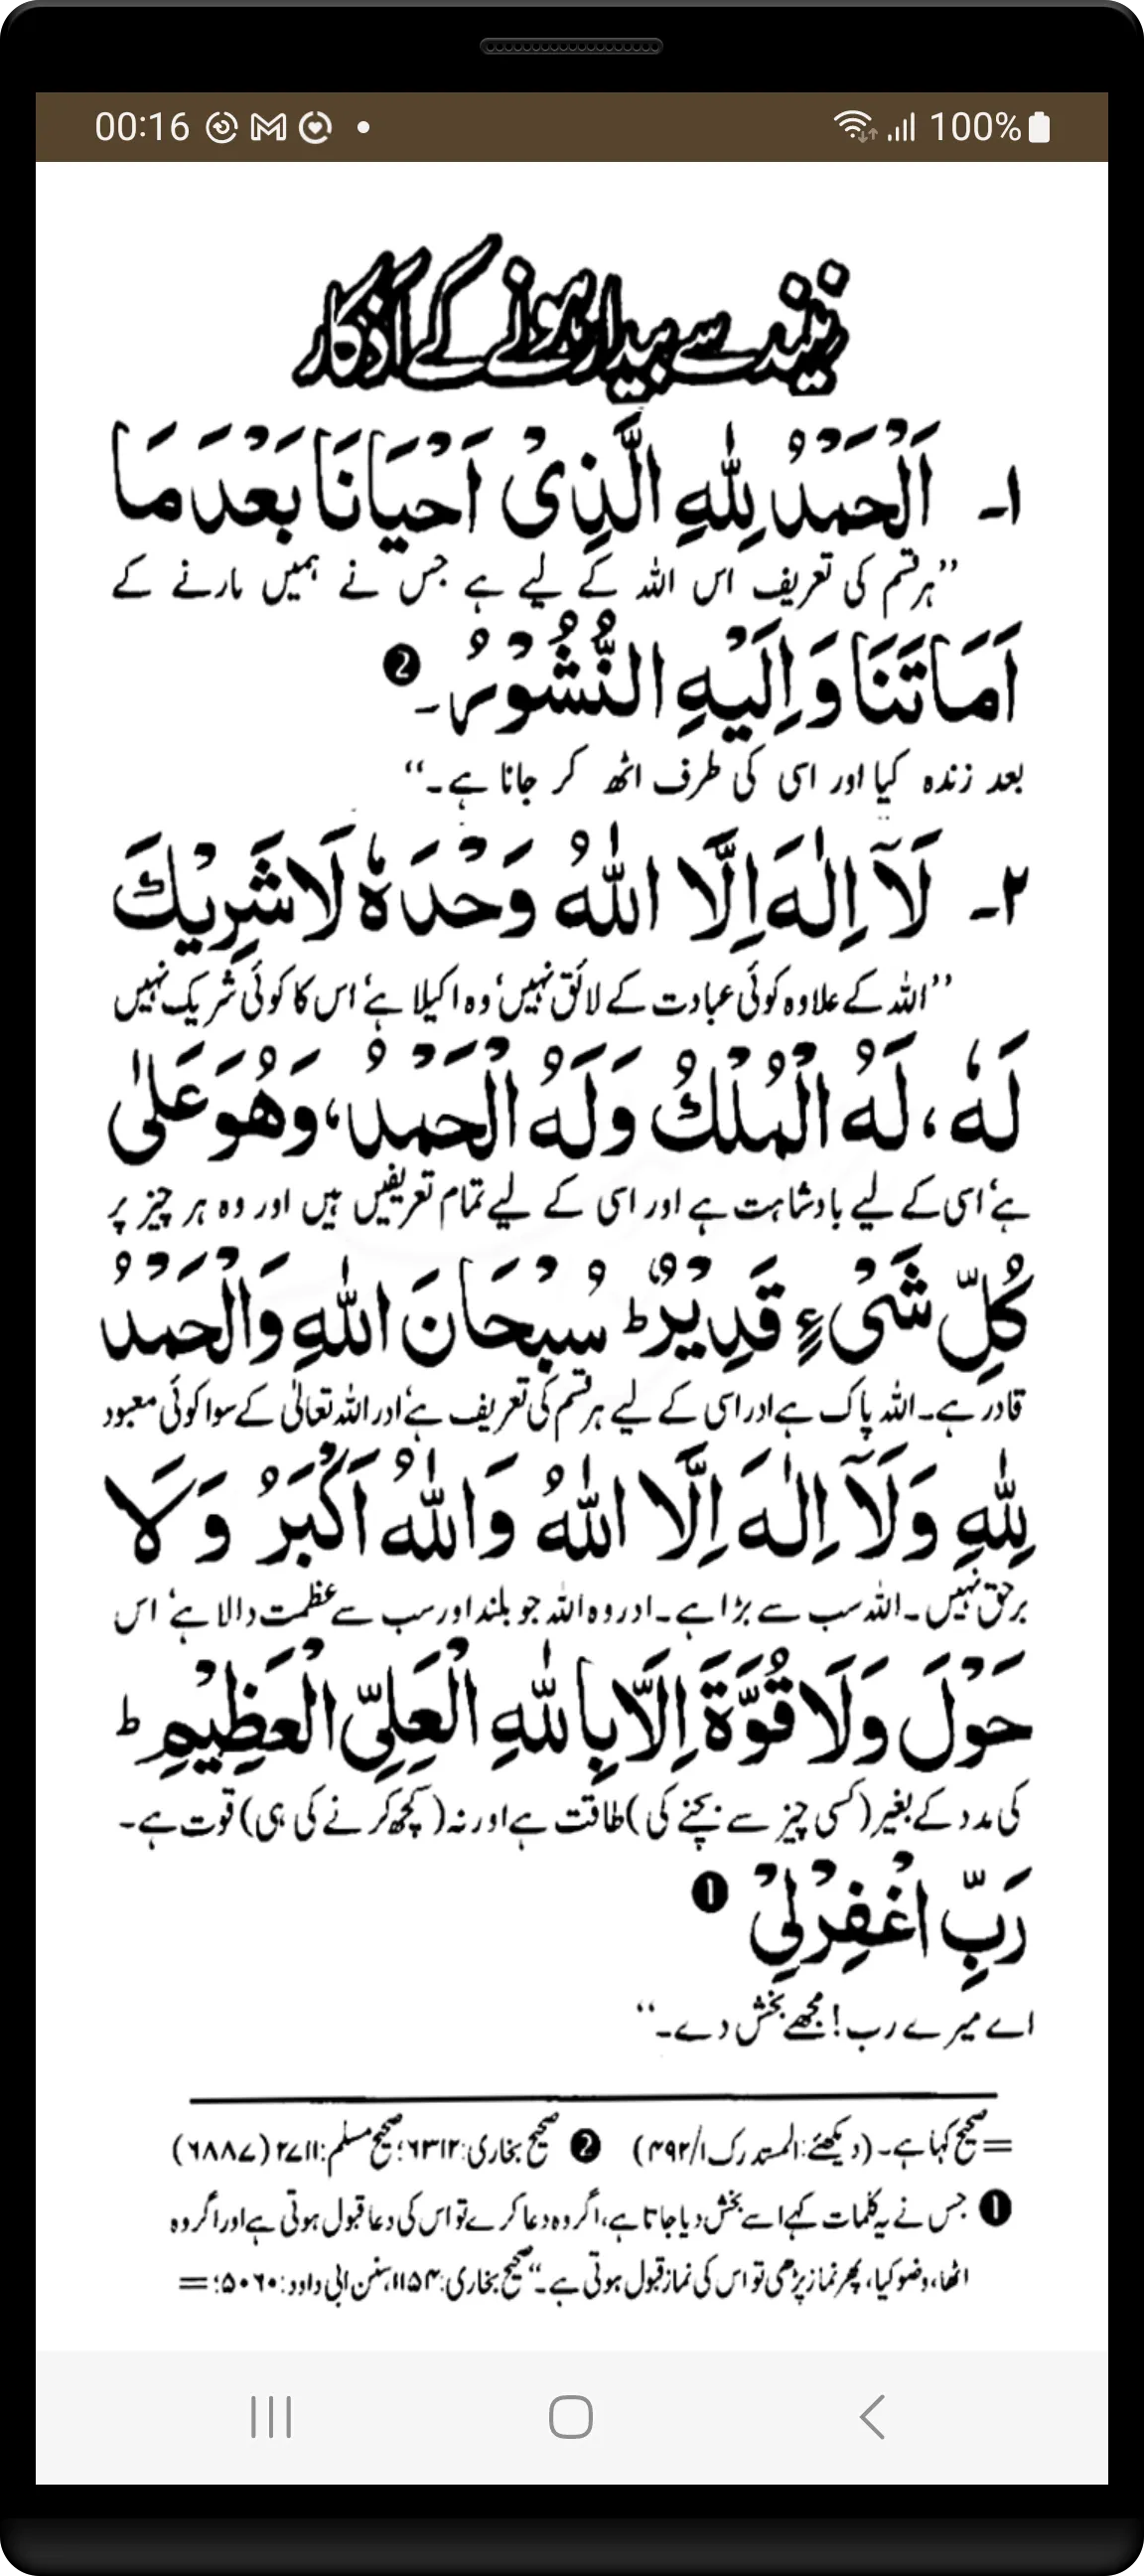 00:16 100%
نیند سے بیدار ہونے کے اذکار
۱۔ اَلْحَمْدُ لِلّٰهِ الَّذِیْ اَحْیَانَا بَعْدَ مَا
”ہر قسم کی تعریف اس اللہ کے لیے ہے جس نے ہمیں مارنے کے
اَمَاتَنَا وَاِلَیْهِ النُّشُوْرُ۔ ❷
بعد زندہ کیا اور اسی کی طرف اٹھ کر جانا ہے۔“
۲۔ لَآ اِلٰهَ اِلَّا اللّٰهُ وَحْدَهٗ لَا شَرِیْكَ
”اللہ کے علاوہ کوئی عبادت کے لائق نہیں، وہ اکیلا ہے، اس کا کوئی شریک نہیں
لَهٗ، لَهُ الْمُلْكُ وَلَهُ الْحَمْدُ، وَهُوَ عَلٰی
ہے، اسی کے لیے بادشاہت ہے اور اسی کے لیے تمام تعریفیں ہیں اور وہ ہر چیز پر
كُلِّ شَیْءٍ قَدِیْرٌ ؕ سُبْحَانَ اللّٰهِ وَالْحَمْدُ
قادر ہے۔ اللہ پاک ہے اور اسی کے لیے ہر قسم کی تعریف ہے، اور اللہ تعالیٰ کے سوا کوئی معبود
لِلّٰهِ وَلَآ اِلٰهَ اِلَّا اللّٰهُ وَاللّٰهُ اَكْبَرُ وَلَا
برحق نہیں۔ اللہ سب سے بڑا ہے۔ اور وہ اللہ جو بلند اور سب سے عظمت والا ہے، اس
حَوْلَ وَلَا قُوَّةَ اِلَّا بِاللّٰهِ الْعَلِیِّ الْعَظِیْمِ ؕ
کی مدد کے بغیر (کسی چیز سے بچنے کی) طاقت ہے اور نہ (کچھ کرنے کی ہی) قوت ہے۔
رَبِّ اغْفِرْلِیْ ❶
اے میرے رب! مجھے بخش دے۔“
= صحیح کہا ہے۔ (دیکھئے: المستدرک ۱/۴۹۲) ❷ صحیح بخاری: ۶۳۱۲؛ صحیح مسلم: ۲۷۱۱ (۶۸۸۷)
❶ جس نے یہ کلمات کہے اسے بخش دیا جاتا ہے، اگر وہ دعا کرے تو اس کی دعا قبول ہوتی ہے اور اگر وہ
اٹھا، وضو کیا، پھر نماز پڑھی تو اس کی نماز قبول ہوتی ہے۔“ صحیح بخاری: ۱۱۵۴، سنن ابی داود: ۵۰۶۰؛ =